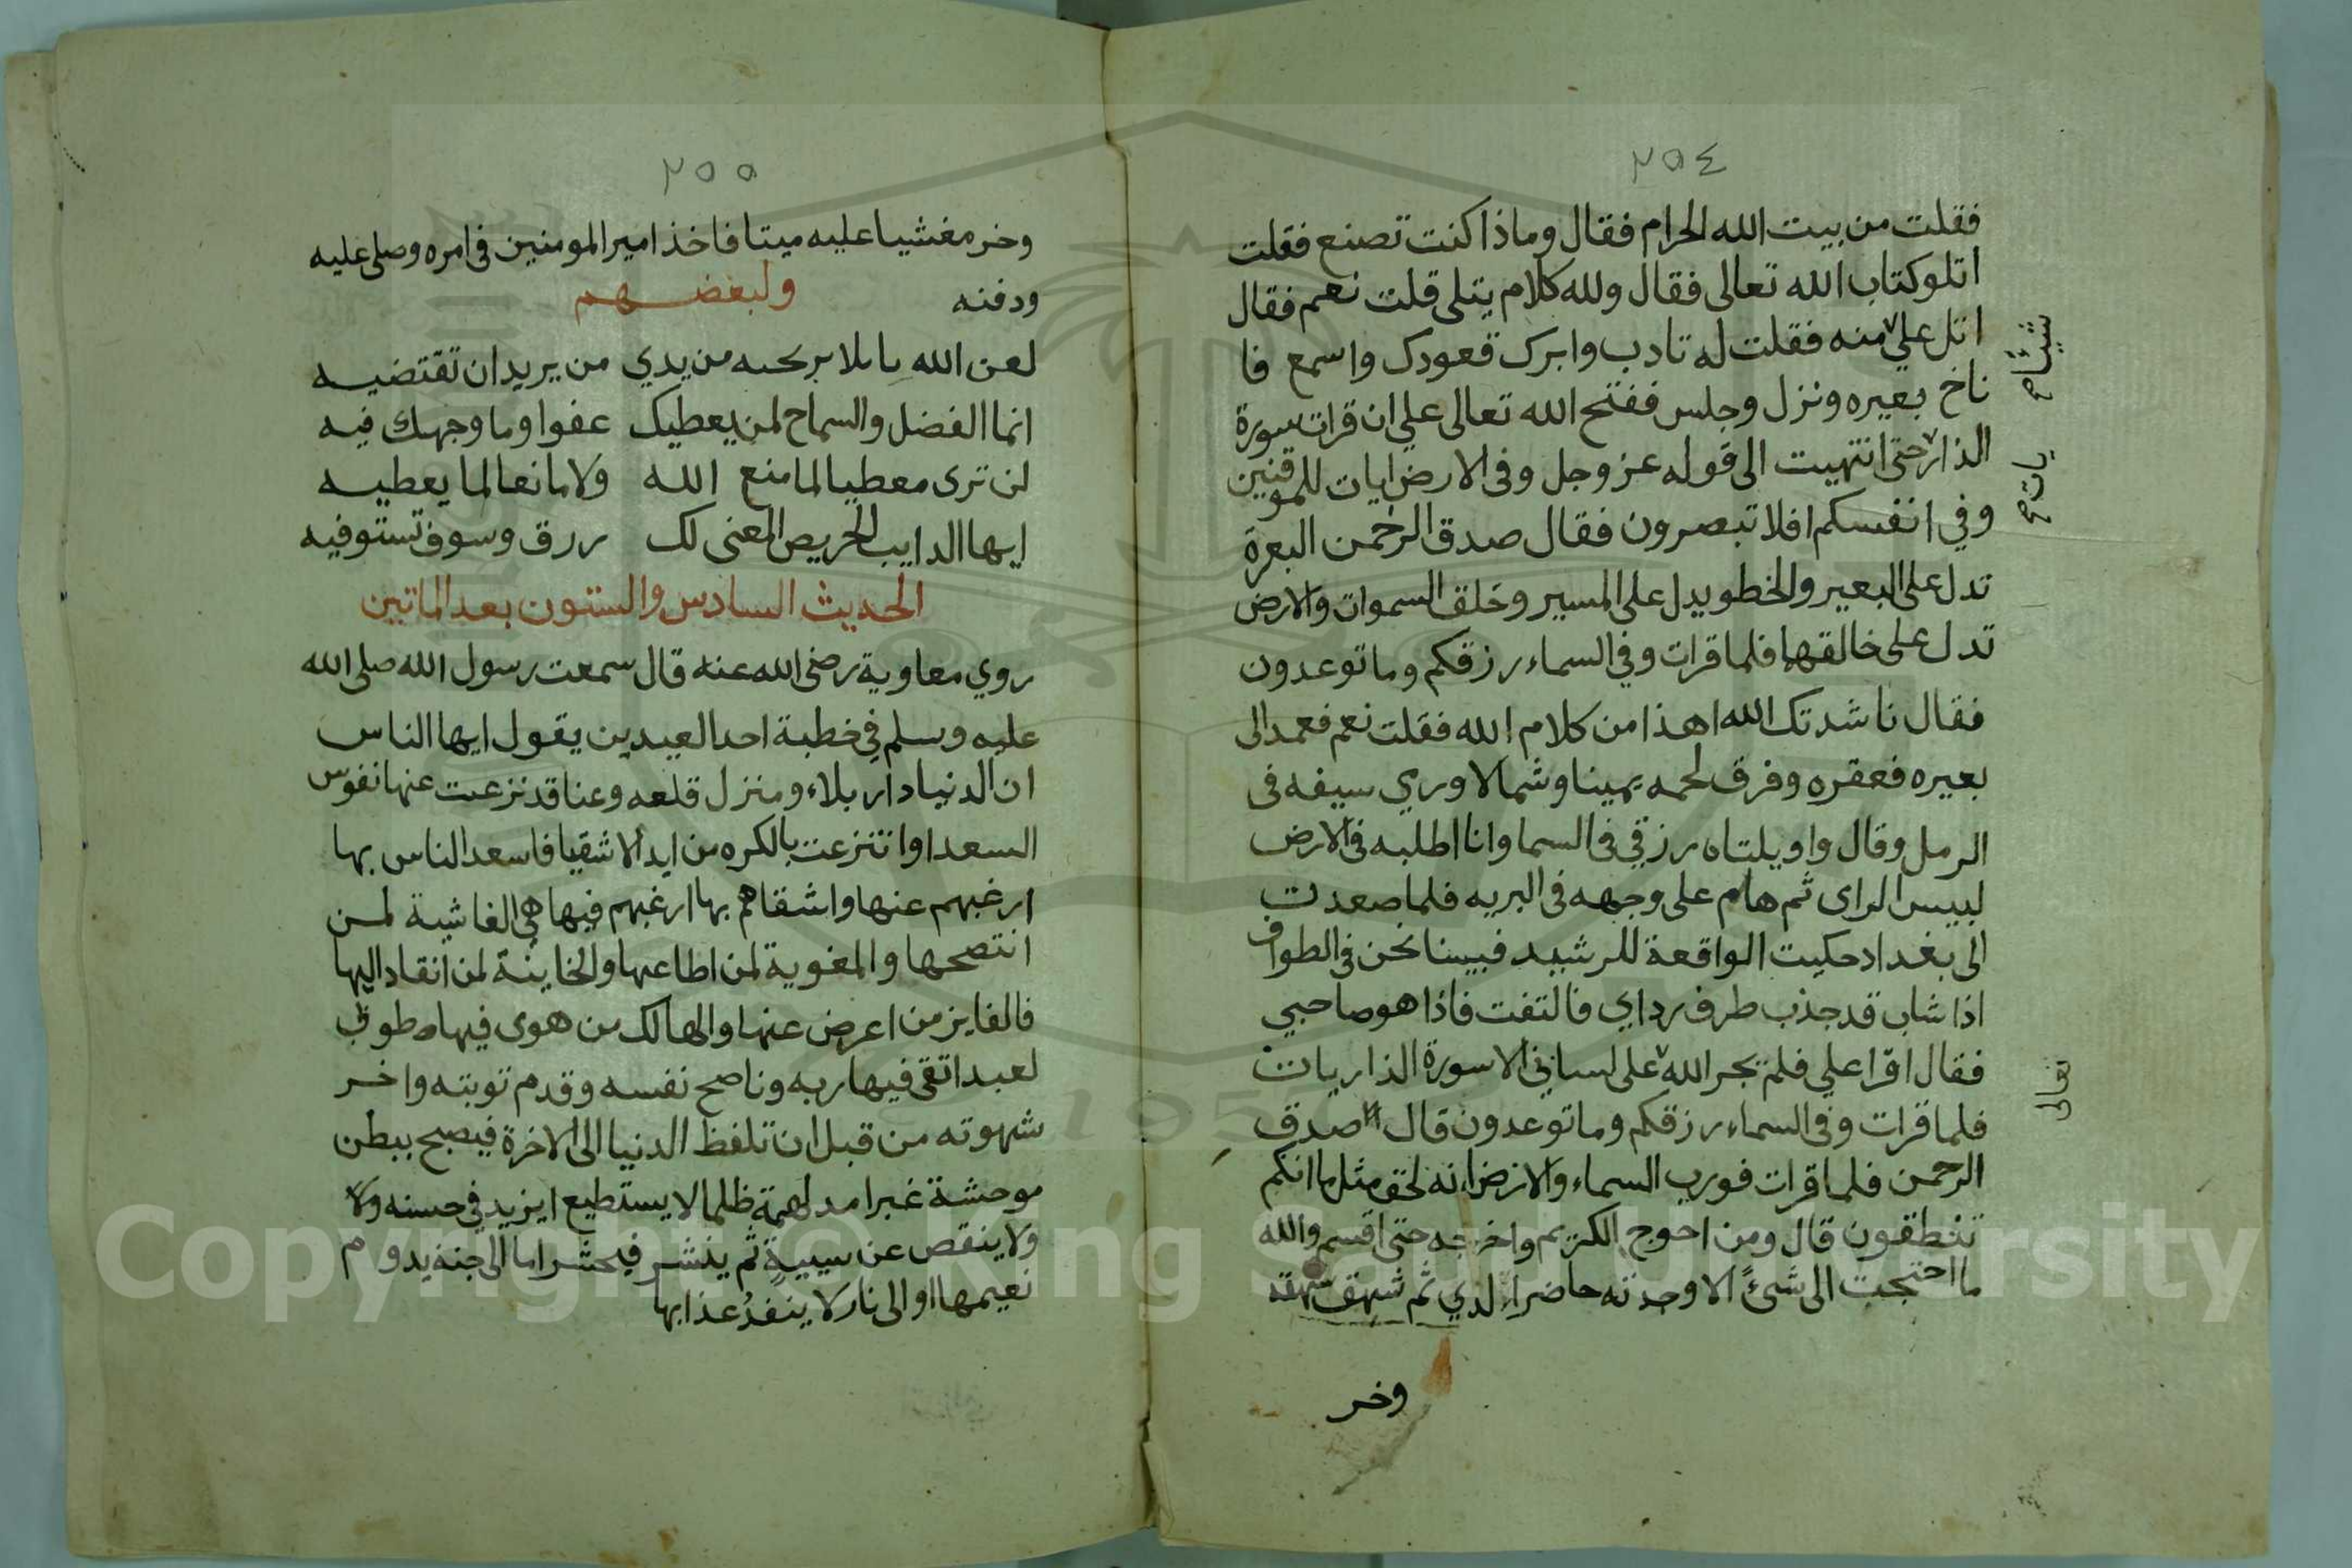 ٢٥٤
فقلت من بيت الله الحرام فقال وماذا كنت تصنع فقلت
اتلو كتاب الله تعالى فقال ولله كلام يتلى قلت نعم فقال
اتل علي منه فقلت له تادب وابرك قعودك واسمع فا
شيئا صح
ناخ بعيره ونزل وجلس ففتح الله تعالى علي ان قرات سورة
الذار حتى انتهيت الى قوله عز وجل وفى الارض ايات للموقنين
يات صح
وفي انفسكم افلا تبصرون فقال صدق الرحمن البعرة
تدل على البعير والخطو يدل على المسير وخلق السموات والارض
تدل على خالقها فلما قرات وفي السماء رزقكم وما توعدون
فقال ناشدتك الله اهذا من كلام الله فقلت نعم فعمد الى
بعيره فعقره وفرق لحمه يمينا وشمالا ورمي سيفه فى
الرمل وقال واويلتاه رزقي فى السما وانا اطلبه فى الارض
لبيس الراى ثم هام على وجهه فى البريه فلما صعدت
الى بغداد حكيت الواقعة للرشيد فبينا نحن فى الطواف
اذا شاب قد جذب طرف رداي فالتفت فاذا هو صاحبي
فقال اقرا علي فلم يجر الله على لساني الا سورة الذاريات
تعالى
فلما قرات وفى السماء رزقكم وما توعدون قال صدق
الرحمن فلما قرات فورب السماء والارض انه لحق مثل ما انكم
تنطقون قال ومن احوج الكريم واخرجه حتى اقسم والله
ما احتجت الى شئ الا وجدته حاضرا لدي ثم شهق شهقه
وخر
٢٥٥
وخر مغشيا عليه ميتا فاخذ امير المومنين فى امره وصلى عليه
ودفنه ولبعضهم
لعن الله من يدي من يريد ان تقتضيه
انما الفضل والسماح لمن يعطيك عفوا وما وجهك فيه
لن ترى معطيا لما منع الله ولا مانعا لما يعطيه
ايها الدايب الحريص المعنى لك رزق وسوف تستوفيه
الحديث السادس والستون بعد الماتين
روي معاوية رضى الله عنه قال سمعت رسول الله صلى الله
عليه وسلم في خطبة احد العيدين يقول ايها الناس
ان الدنيا دار بلاء ومنزل قلعه وعنا قد نزعت عنها نفوس
السعدا وانتزعت بالكره من ايد الاشقيا فاسعد الناس بها
ارغبهم عنها واشقاهم بها ارغبهم فيها هى الغاشية لمن
انتصحها والمغوية لمن اطاعها والخاينة لمن انقاد اليها
فالفايز من اعرض عنها والهالك من هوى فيها طوبى
لعبد اتقى فيها ربه وناصح نفسه وقدم توبته واخر
شهوته من قبل ان تلفظ الدنيا الى الاخرة فيصبح ببطن
موحشة غبرا مدلهمة ظلما لا يستطيع ايزيد في حسنه ولا
ولا ينقص عن سيية ثم ينشر فيحشر اما الى جنة يدوم
نعيمها او الى نار لا ينفد عذابها
Copyright © King Saud University
1957